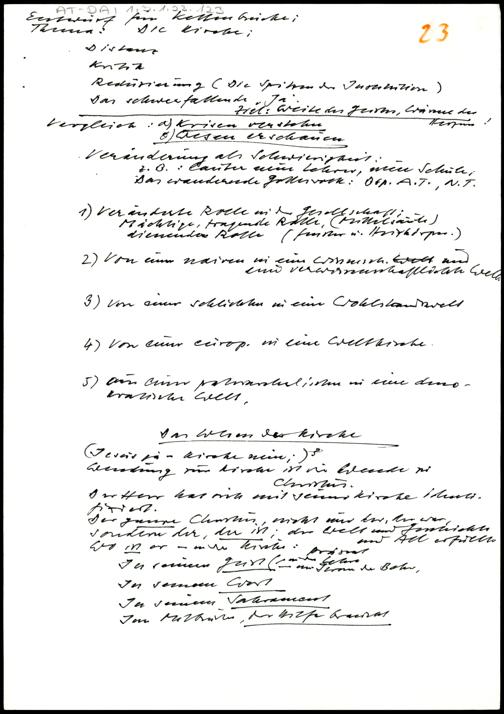 AT-DA| 1.3.1.32.123
23
Entwurf für Kettenbrücke;
Thema: Die Kirche;
Distanz
Kritik
Reduzierung (Die Spitzen der Institution)
Das schwerfallende Ja.
Ziel: Weite des Geistes, Wärme des
Herzens!
Vergleich: a) Krisen verstehn
b) Wesen erschauen
Veränderung als Schwierigkeit:
z.B.: Lauter neue Lehrer, neue Schule,
Das wandernde Gottesvolk: Bsp. A.T., N.T.
1) Veränderte Rolle in der Gesellschaft;
Mächtige, tragende Rolle, (Mittelalter)
dienenden Rolle
2) Von einer naiven in eine wissensch. Welt und
eine verwissenschaftlichte Welt
3) Von einer schlichten in eine Wohlstandswelt
4) Von einer europ. in eine Weltkirche.
5) aus einer patriarchalischen in eine demo-
kratische Welt.
Das Wesen der Kirche
(Jesus ja - Kirche nein;)
Wendung zur Kirche ist die Wende zu
Christus.
Der Herr hat sich mit seiner Kirche identi-
fiziert.
Der ganze Christus, nicht nur der, der war,
sondern der, der ist; der Welt und Geschichte
und All erfüllt
Wo ist er - in der Kirche: präsent
In seinem Geist
In seinem Wort
In seinem Sakrament
Im Mitbruder, der Hilfe braucht